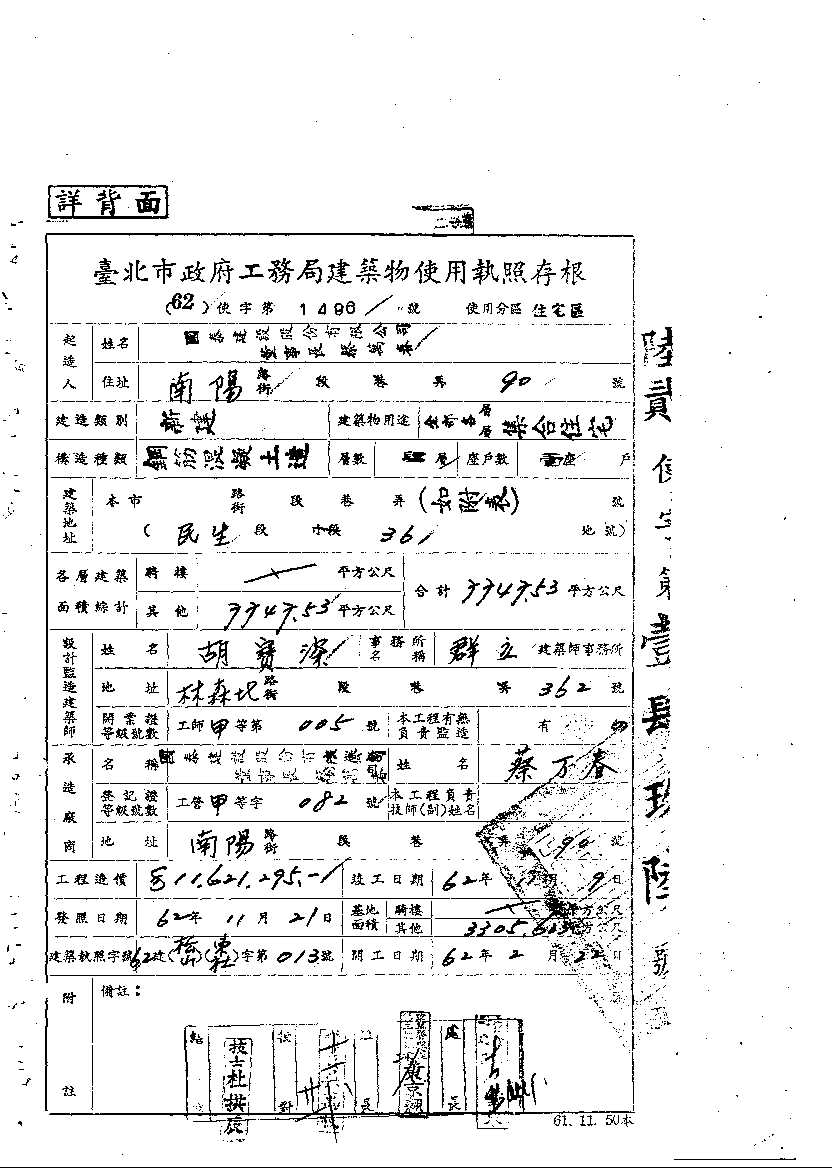 詳背面
臺北市政府工務局建築物使用執照存根
(62)使字第 1496 號 使用分區 住宅區
起造人 姓名 國泰建設股份有限公司
董事長蔡萬春
住址 南陽 路街 段 巷 弄 90 號
建造類別 新建 建築物用途 全部各層層集合住宅
構造種類 鋼筋混凝土造 層數 層 座戶數 座 戶
建築地址 本市 路街 段 巷 弄 (如附表) 號
(民生段 小段 361 地號)
各層建築面積綜計 騎樓 平方公尺 合計 7747.53 平方公尺
其他 7747.53 平方公尺
設計監造建築師 姓名 胡寶深 事務所名稱 群立 建築師事務所
地址 林森北 路街 段 巷 弄 362 號
開業證等級號數 工師甲等第 005 號 本工程有無負責監造 有
承造廠商 名稱 國泰建設股份有限公司 姓名 蔡万春
登記證等級號數 工營甲等字 082 號 本工程負責技師(副)姓名
地址 南陽 路街 段 巷 弄 94 號
工程造價 11,621,295.- 竣工日期 62年 月 9日
發照日期 62年 11月 21日 基地面積 騎樓 平方公尺
其他 平方公尺
建築執照字號 62建( )( )字第 013 號 開工日期 62年 2月 22日
附註 備註：
技士杜拱辰
處長
61.11.50本
陸貳使字第壹肆玖陸號